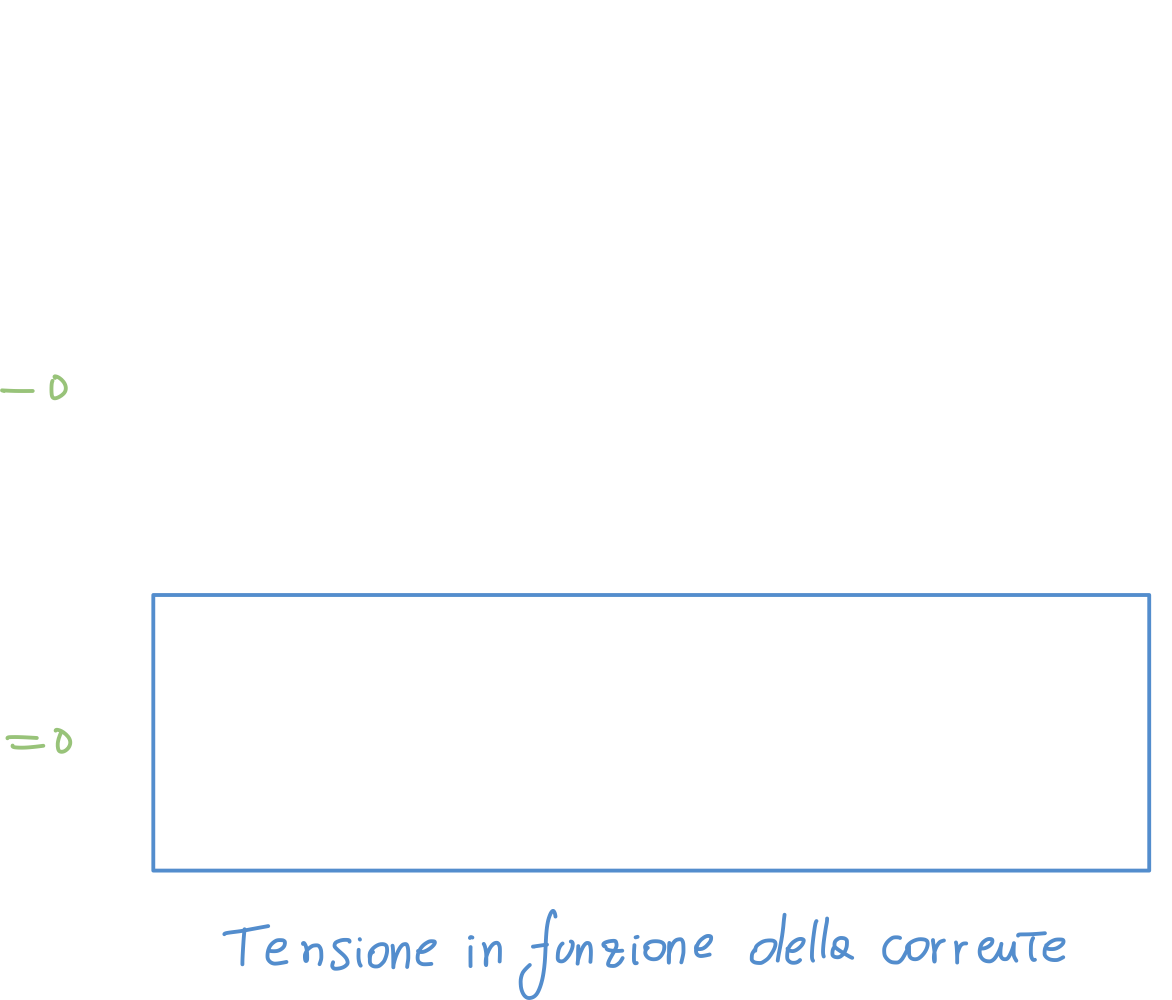 - 0
= 0
Tensione in funzione della corrente